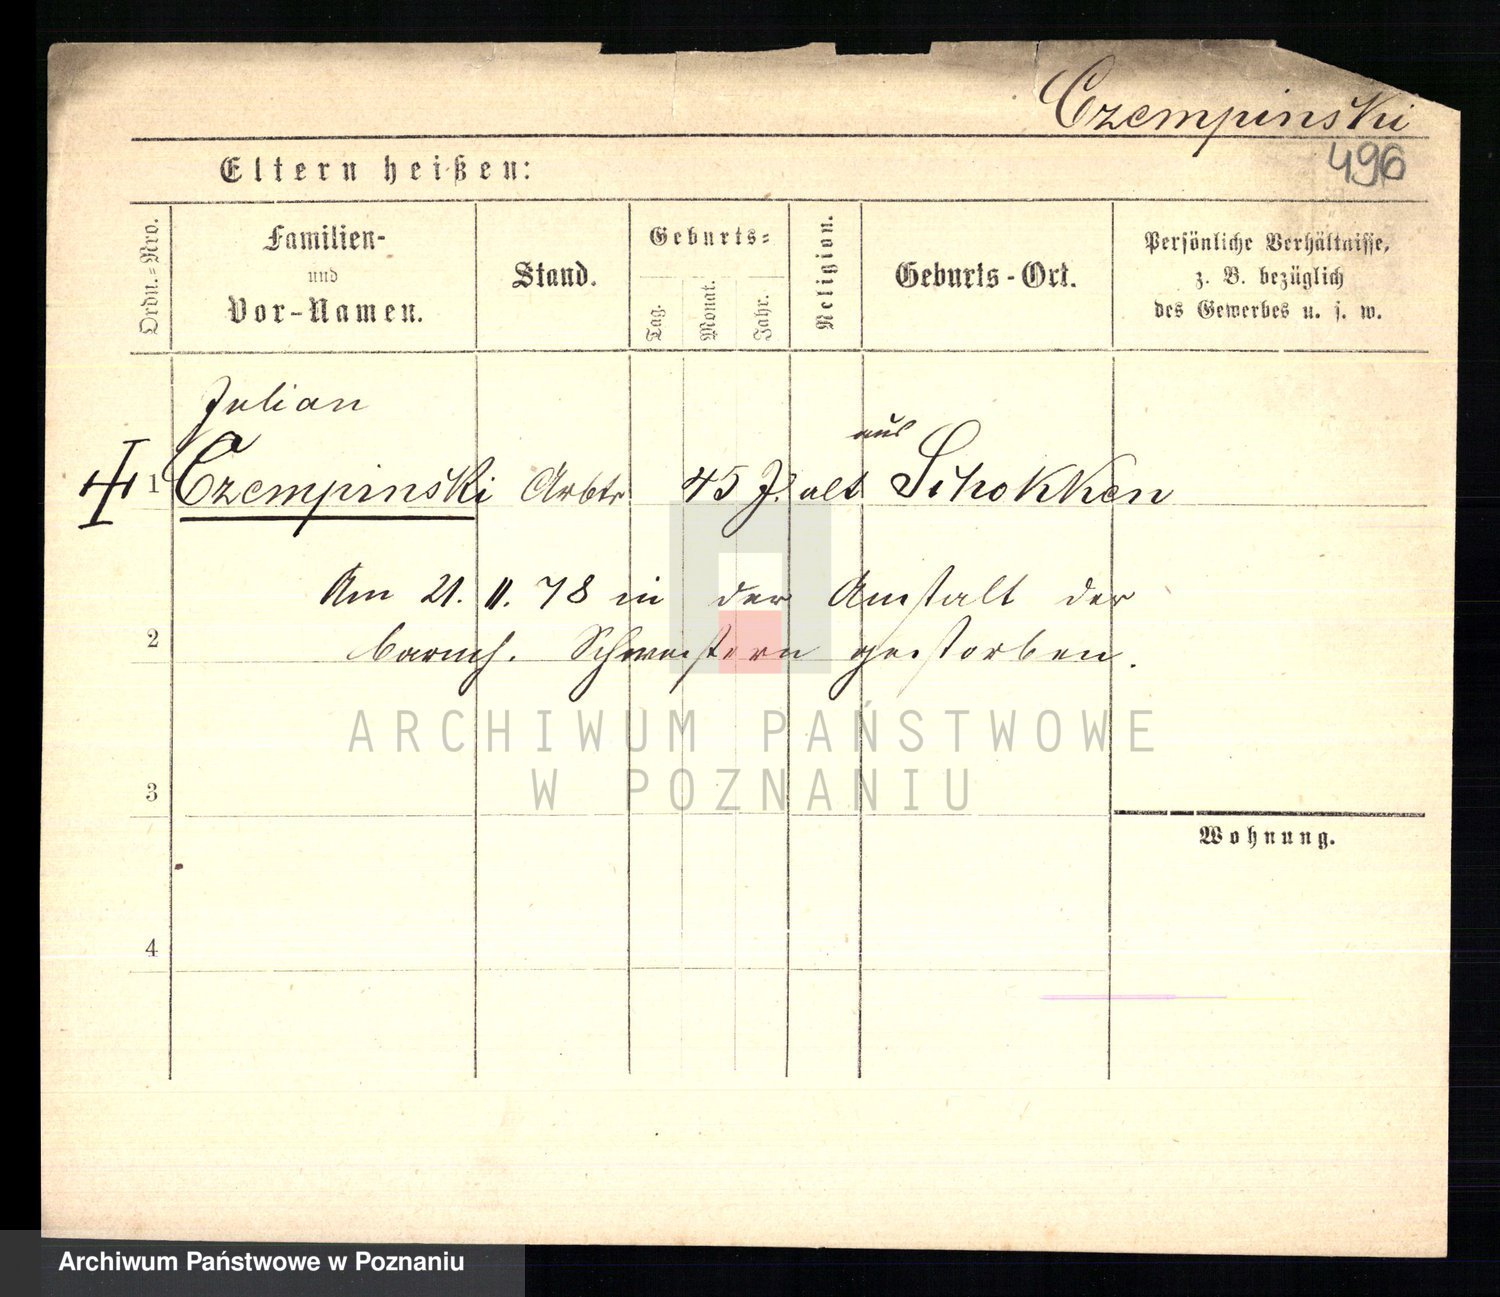 Czempinski
496
Eltern heißen:
Ordn.=Nro.
Familien-
und
Vor-Namen.
Stand.
Geburts=
Tag.
Monat.
Jahr.
Religion.
Geburts-Ort.
Persönliche Verhältnisse,
z. B. bezüglich
des Gewerbes u. s. w.
Julian
1 Czempinski Arbtr 45 J. alt aus Schokken
Am 21. 11. 78 in der Anstalt der
2
barmh. Schwestern gestorben.
ARCHIWUM PAŃSTWOWE
W POZNANIU
3
Wohnung.
4
Archiwum Państwowe w Poznaniu